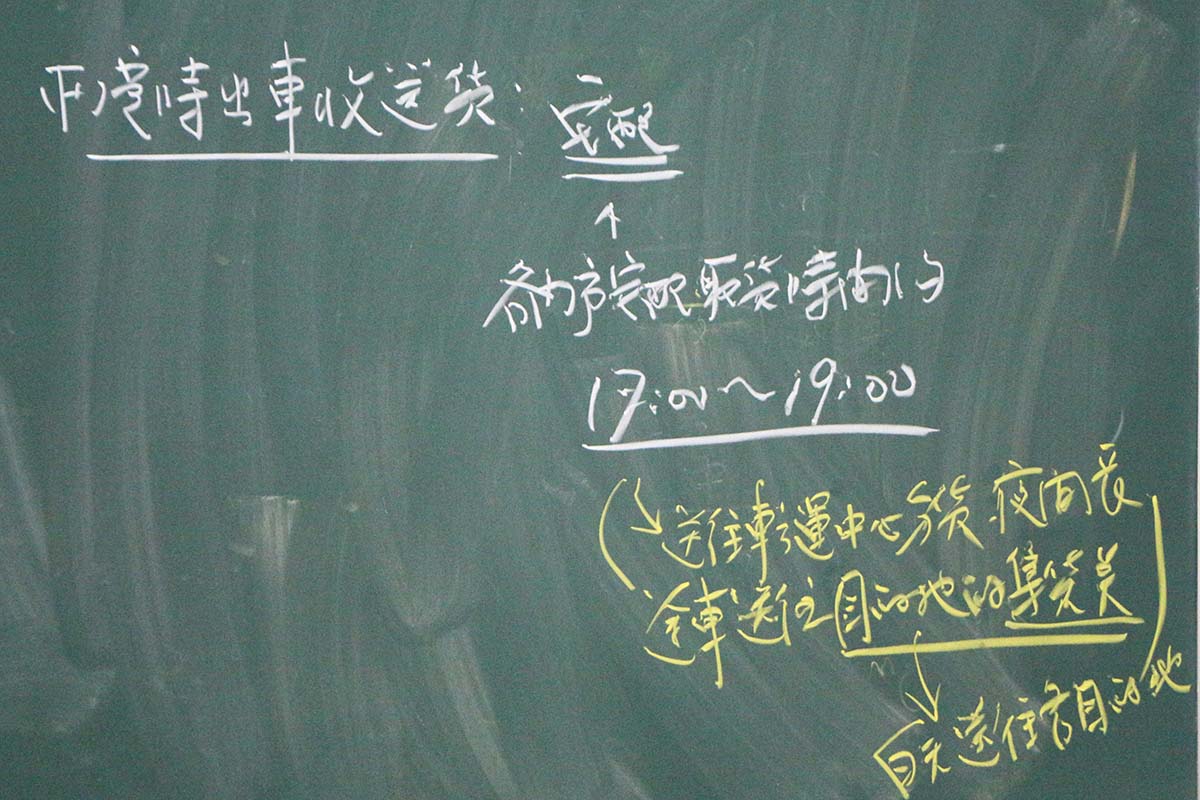 不定時出車收送貨：宅配
↑
各縣市宅配取貨時間約
17:00～19:00
(→送往轉運中心分貨，夜間長
途車送往目的地的集貨點)
↓
白天送往各目的地